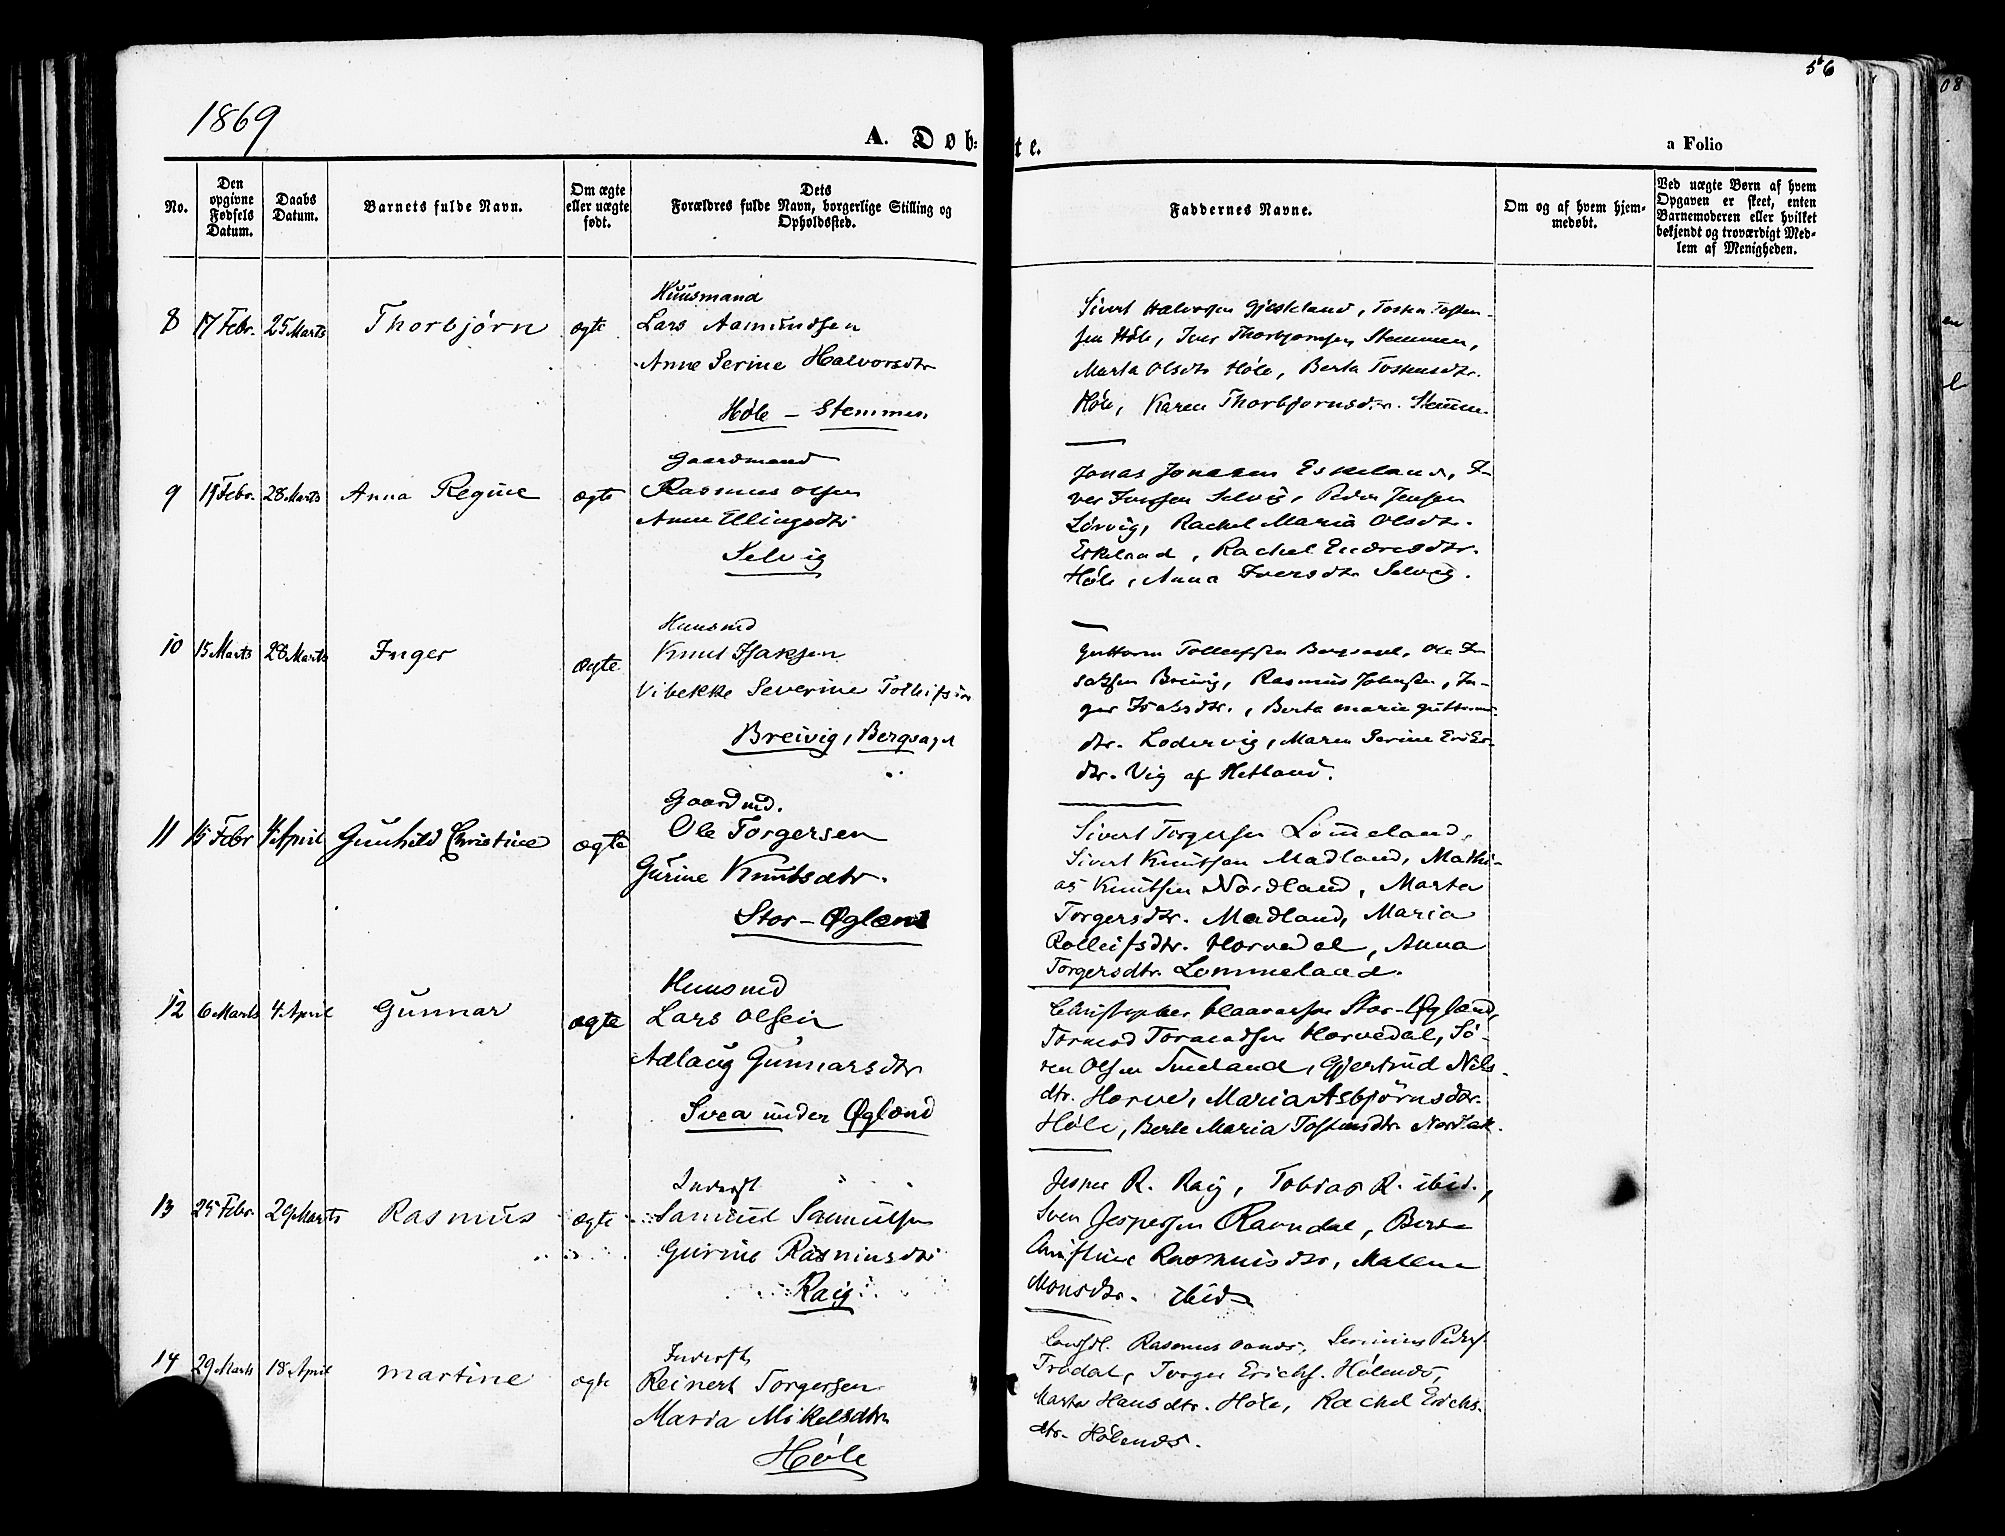 56
1869
A. Døb=
te.
a Folio
No.
Den opgivne Fødsels Datum.
Daabs Datum.
Barnets fulde Navn.
Om ægte eller uægte født.
Dets Forældres fulde Navn, borgerlige Stilling og Opholdssted.
Faddernes Navne.
Om og af hvem hjem-medøbt.
Ved uægte Børn af hvem Opgaven er skeet, enten Barnemoderen eller hvilket bekjendt og troværdigt Med-lem af Menigheden.
8 17 Febr. 25 Marts Thorbjørn ægte
Huusmand
Lars Aamundsen
Anne Serine Halvorsdtr
Høle - Stemmen
Sivert Halvorsen Gjeskeland, Tosten Tosten-
sen Høle, Iver Thorbjørnsen Stemmen,
Marta Olsdtr Høle, Berta Tostensdtr.
Høle, Karen Thorbjørnsdtr. Stemmen
9 19 Febr. 28 Marts Anna Regine ægte
Gaardmand
Rasmus Olsen
Anne Ellingsdtr
Selvig
Jonas Jonasen Eskeland, I-
ver Iversen Selvig, Peder Jensen
Lørvig, Rachel Maria Olsdtr.
Eskeland, Rachel Endresdtr.
Høle, Anna Iversdtr Selvig.
10 15 Marts 28 Marts Inger ægte
Huusmd
Knut Isaksen
Vibekke Severine Tolleifsdtr
Breivig, Bergsagel
Guttorm Tolleifsen Bergsagel, Ole I-
saksen Breivig, Rasmus Johnsen, In-
ger Isaksdtr., Berta Marie Guttorms-
dtr. Lodervig, Maren Serine Eriks-
dtr. Vig af Hetland.
11 15 Febr 4 April Gunhild Christine ægte
Gaardmd.
Ole Torgersen
Gurine Knutsdtr.
Stor-Øgland
Sivert Torgersen Lommeland,
Sivert Knutsen Madland, Mathi-
as Knutsen Nordland, Marta
Torgersdtr. Madland, Maria
Rolleifsdtr. Horvedal, Anna
Torgersdtr. Lommeland.
12 6 Marts 4 April Gunnar ægte
Huusmd
Lars Olsen
Adlaug Gunnarsdtr
Svea under Øgland
Christopher Haavarsen Stor-Øgland,
Tormod Tormodsen Horvedal, Sø-
ren Olsen Imeland, Gjertrud Nils-
dtr. Horve, Maria Asbjørnsdtr.
Høle, Berte Maria Tostensdtr
13 25 Febr. 29 Marts Rasmus ægte
Inderst
Samuel Samuelsen
Gurine Rasmusdtr
Raig
Jesper R. Raig, Tobias R. ibid.,
Sven Jespersen Ravndal, Berte
Christine Rasmusdtr, Malene
Monsdtr. ibid
14 29 Marts 18 April Martine ægte
Inderst
Reinert Torgersen
Maria Mikelsdtr
Høle
Rasmus
Trodal, Torger Erichs. Hølends,
Marta Hansdtr. Høle, Rachel Erichs-
dtr. Hølends.